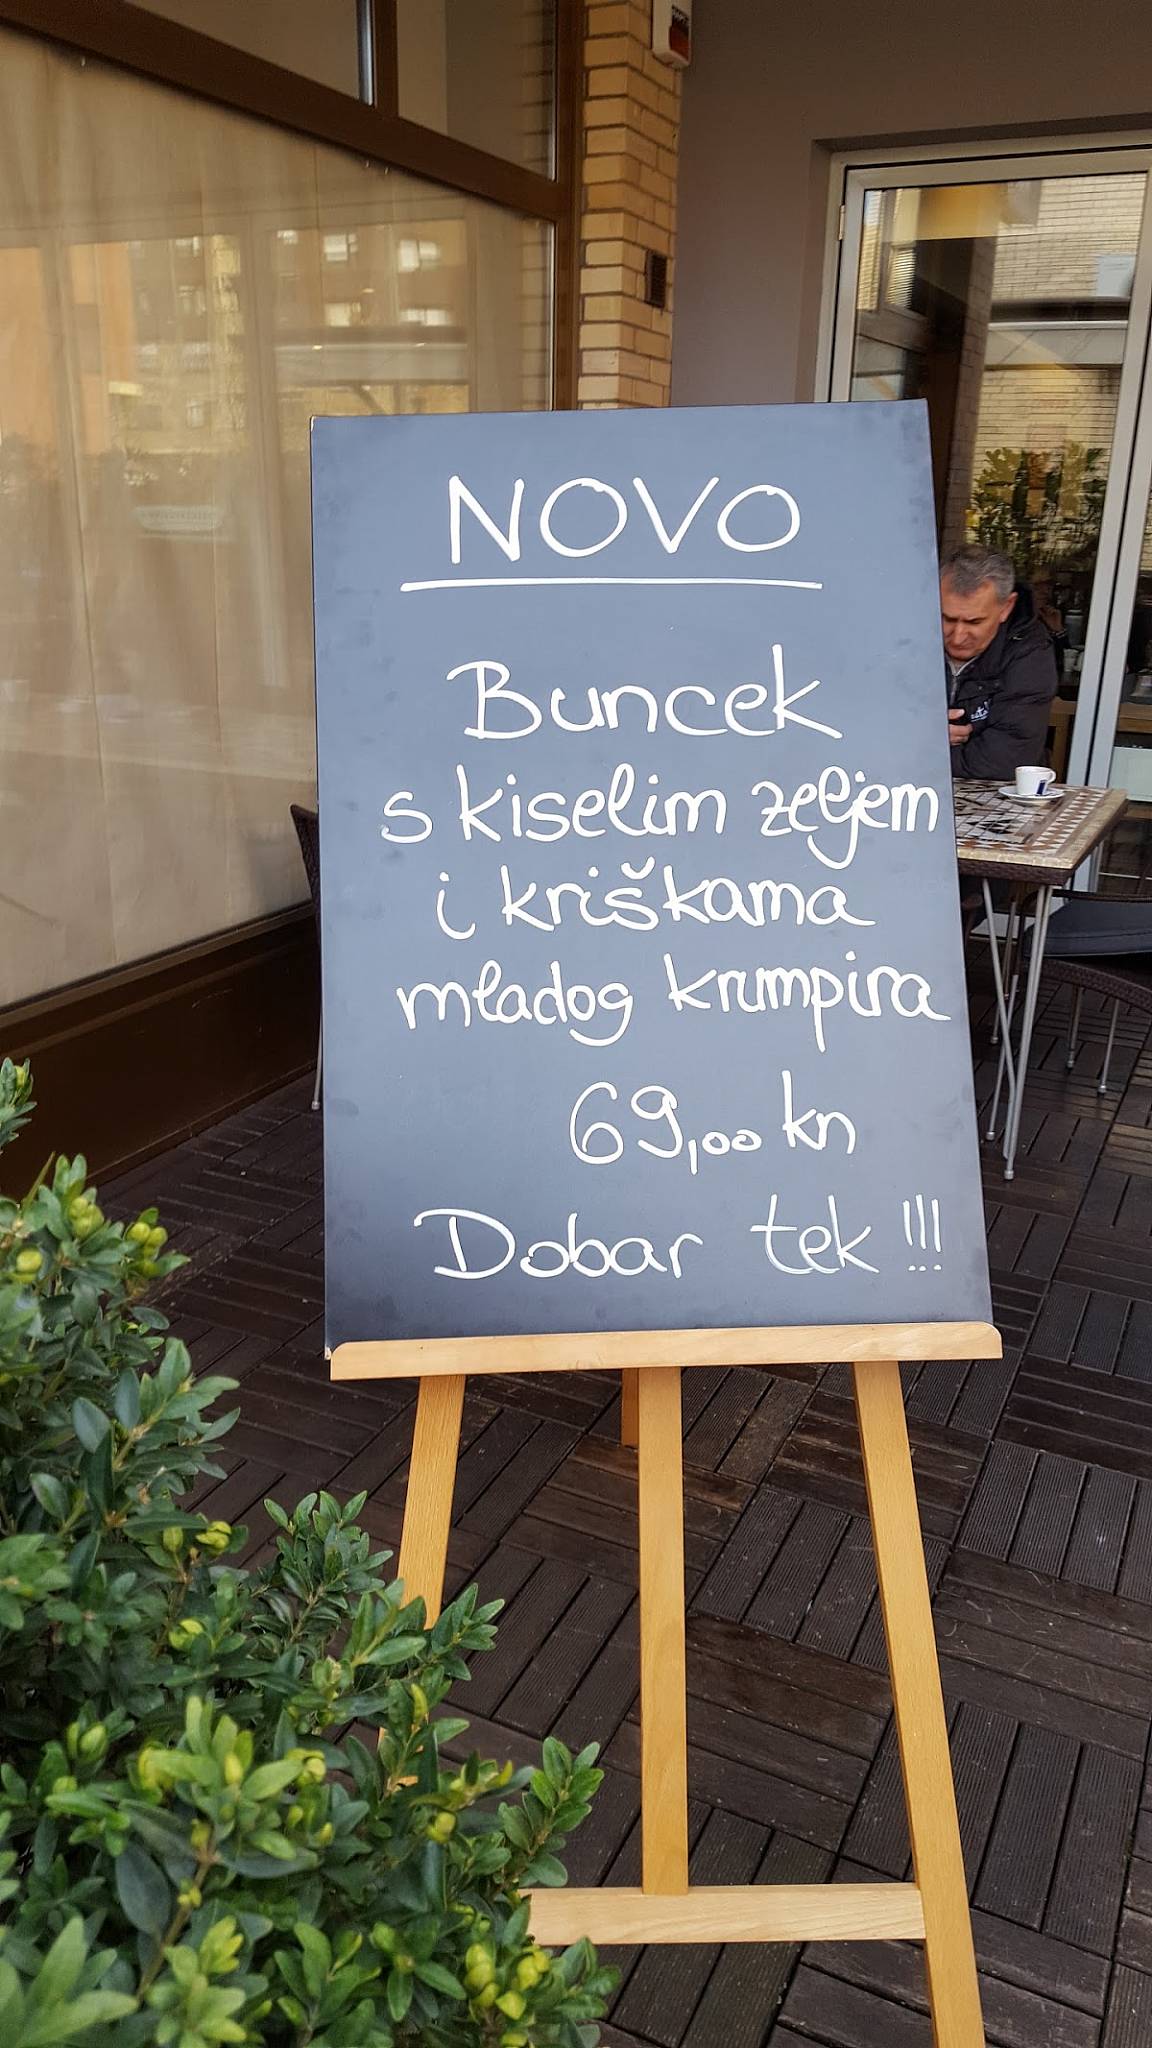 NOVO
Buncek
s kiselim zeljem
i kriškama
mladog krumpira
69,00 kn
Dobar tek !!!